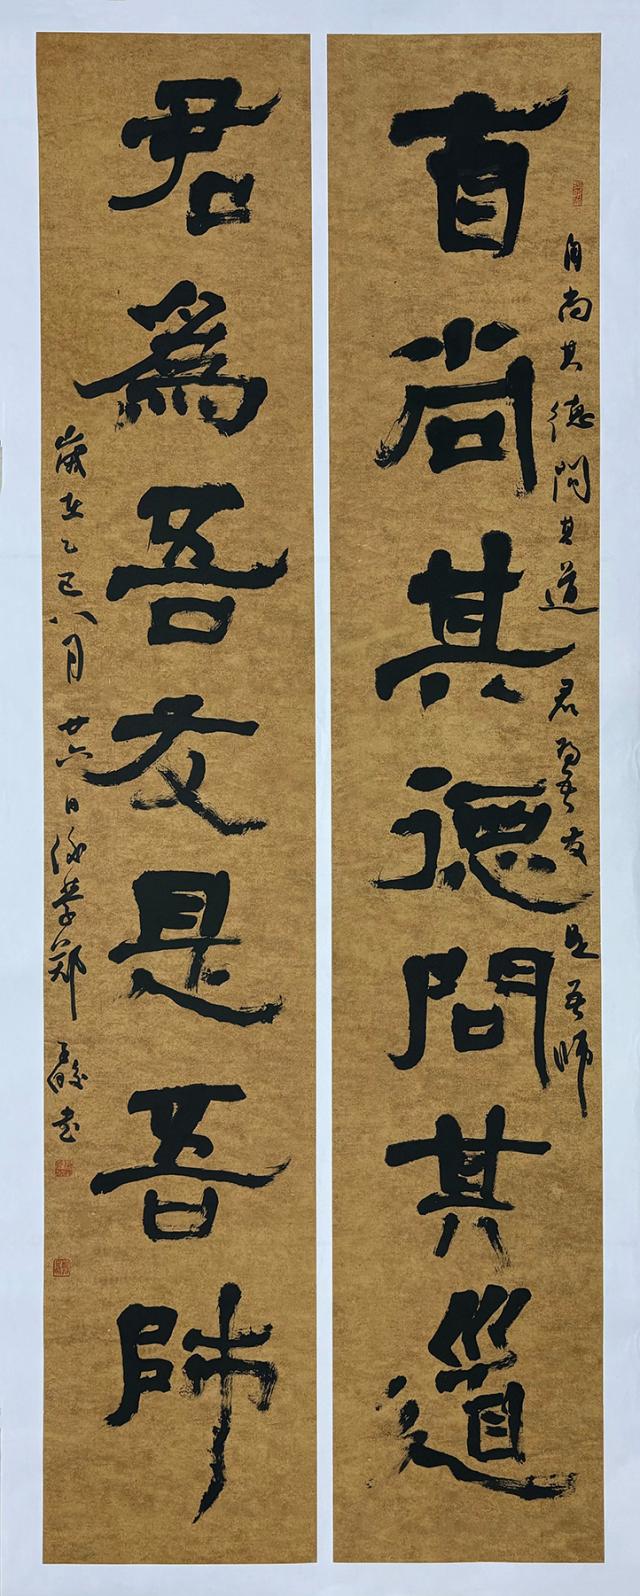 自尚其德問其道 君為吾友 是吾師
尚其德問其道
君為吾友是吾師
歲在乙巳八月廿六日後學鄭書